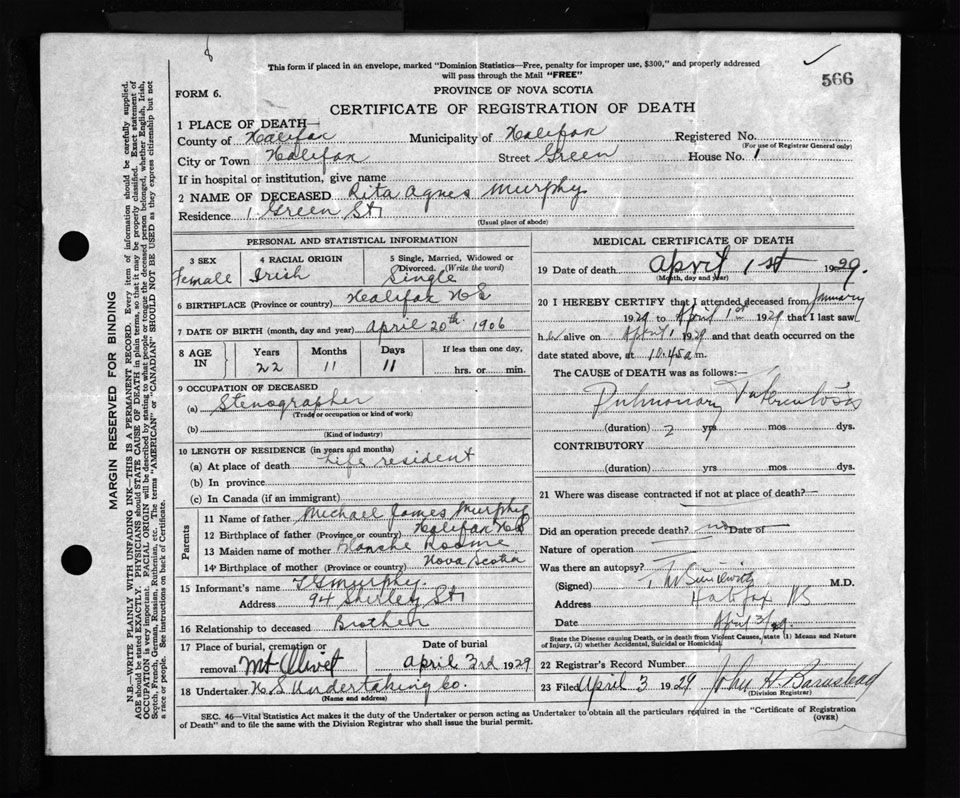 This form if placed in an envelope, marked "Dominion Statistics—Free, penalty for improper use, $300," and properly addressed
will pass through the Mail "FREE"
566
FORM 6.
PROVINCE OF NOVA SCOTIA
CERTIFICATE OF REGISTRATION OF DEATH
1 PLACE OF DEATH—
County of Halifax Municipality of Halifax Registered No.
(For use of Registrar General only)
City or Town Halifax Street Green House No. 1
If in hospital or institution, give name
2 NAME OF DECEASED Rita Agnes Murphy
Residence 1 Green St.
(Usual place of abode)
PERSONAL AND STATISTICAL INFORMATION
3 SEX Female
4 RACIAL ORIGIN Irish
5 Single, Married, Widowed or Divorced. (Write the word) Single
6 BIRTHPLACE (Province or country) Halifax NS
7 DATE OF BIRTH (month, day and year) April 20th 1906
8 AGE IN Years 22 Months 11 Days 11 If less than one day, hrs. or min.
9 OCCUPATION OF DECEASED
(a) Stenographer
(Trade or occupation or kind of work)
(b)
(Kind of industry)
10 LENGTH OF RESIDENCE (in years and months)
(a) At place of death Life resident
(b) In province
(c) In Canada (if an immigrant)
Parents
11 Name of father Michael James Murphy
12 Birthplace of father (Province or country) Halifax NS
13 Maiden name of mother Blanche
14 Birthplace of mother (Province or country) Nova Scotia
15 Informant's name Murphy
Address 94 Shirley St
16 Relationship to deceased Brother
17 Place of burial, cremation or removal Mt Olivet
Date of burial April 3rd 1929
18 Undertaker N. S. Undertaking Co.
(Name and address)
MEDICAL CERTIFICATE OF DEATH
19 Date of death April 1st 1929.
(Month, day and year)
20 I HEREBY CERTIFY that I attended deceased from January
1929 to April 1st 1929 that I last saw
her alive on April 1 1929 and that death occurred on the
date stated above, at 10.45 a m.
The CAUSE of DEATH was as follows:—
Pulmonary Tuberculosis
(duration) 2 yrs mos dys.
CONTRIBUTORY
(duration) yrs mos dys.
21 Where was disease contracted if not at place of death?—
Did an operation precede death? no Date of —
Nature of operation —
Was there an autopsy?
(Signed) M.D.
Address Halifax NS
Date April 3/29
State the Disease causing Death, or in death from Violent Causes, state (1) Means and Nature
of Injury, (2) whether Accidental, Suicidal or Homicidal.
22 Registrar's Record Number
23 Filed April 3 1929 John H. Barnstead
(Division Registrar)
SEC. 46—Vital Statistics Act makes it the duty of the Undertaker or person acting as Undertaker to obtain all the particulars required in the "Certificate of Registration
of Death" and to file the same with the Division Registrar who shall issue the burial permit. (OVER)
MARGIN RESERVED FOR BINDING
N.B.—WRITE PLAINLY WITH UNFADING INK—THIS IS A PERMANENT RECORD. Every item of information should be carefully supplied.
AGE should be stated EXACTLY. PHYSICIANS should STATE CAUSE OF DEATH in plain terms, so that it may be properly classified. Exact statement of
OCCUPATION is very important. RACIAL ORIGIN will be described by stating to what people or tongue the deceased person belonged, whether English, Irish,
Scotch, French, German, Russian, Ruthenian, etc. The terms "AMERICAN" or "CANADIAN" SHOULD NOT BE USED as they express citizenship but not
a race or people. See instructions on back of Certificate.